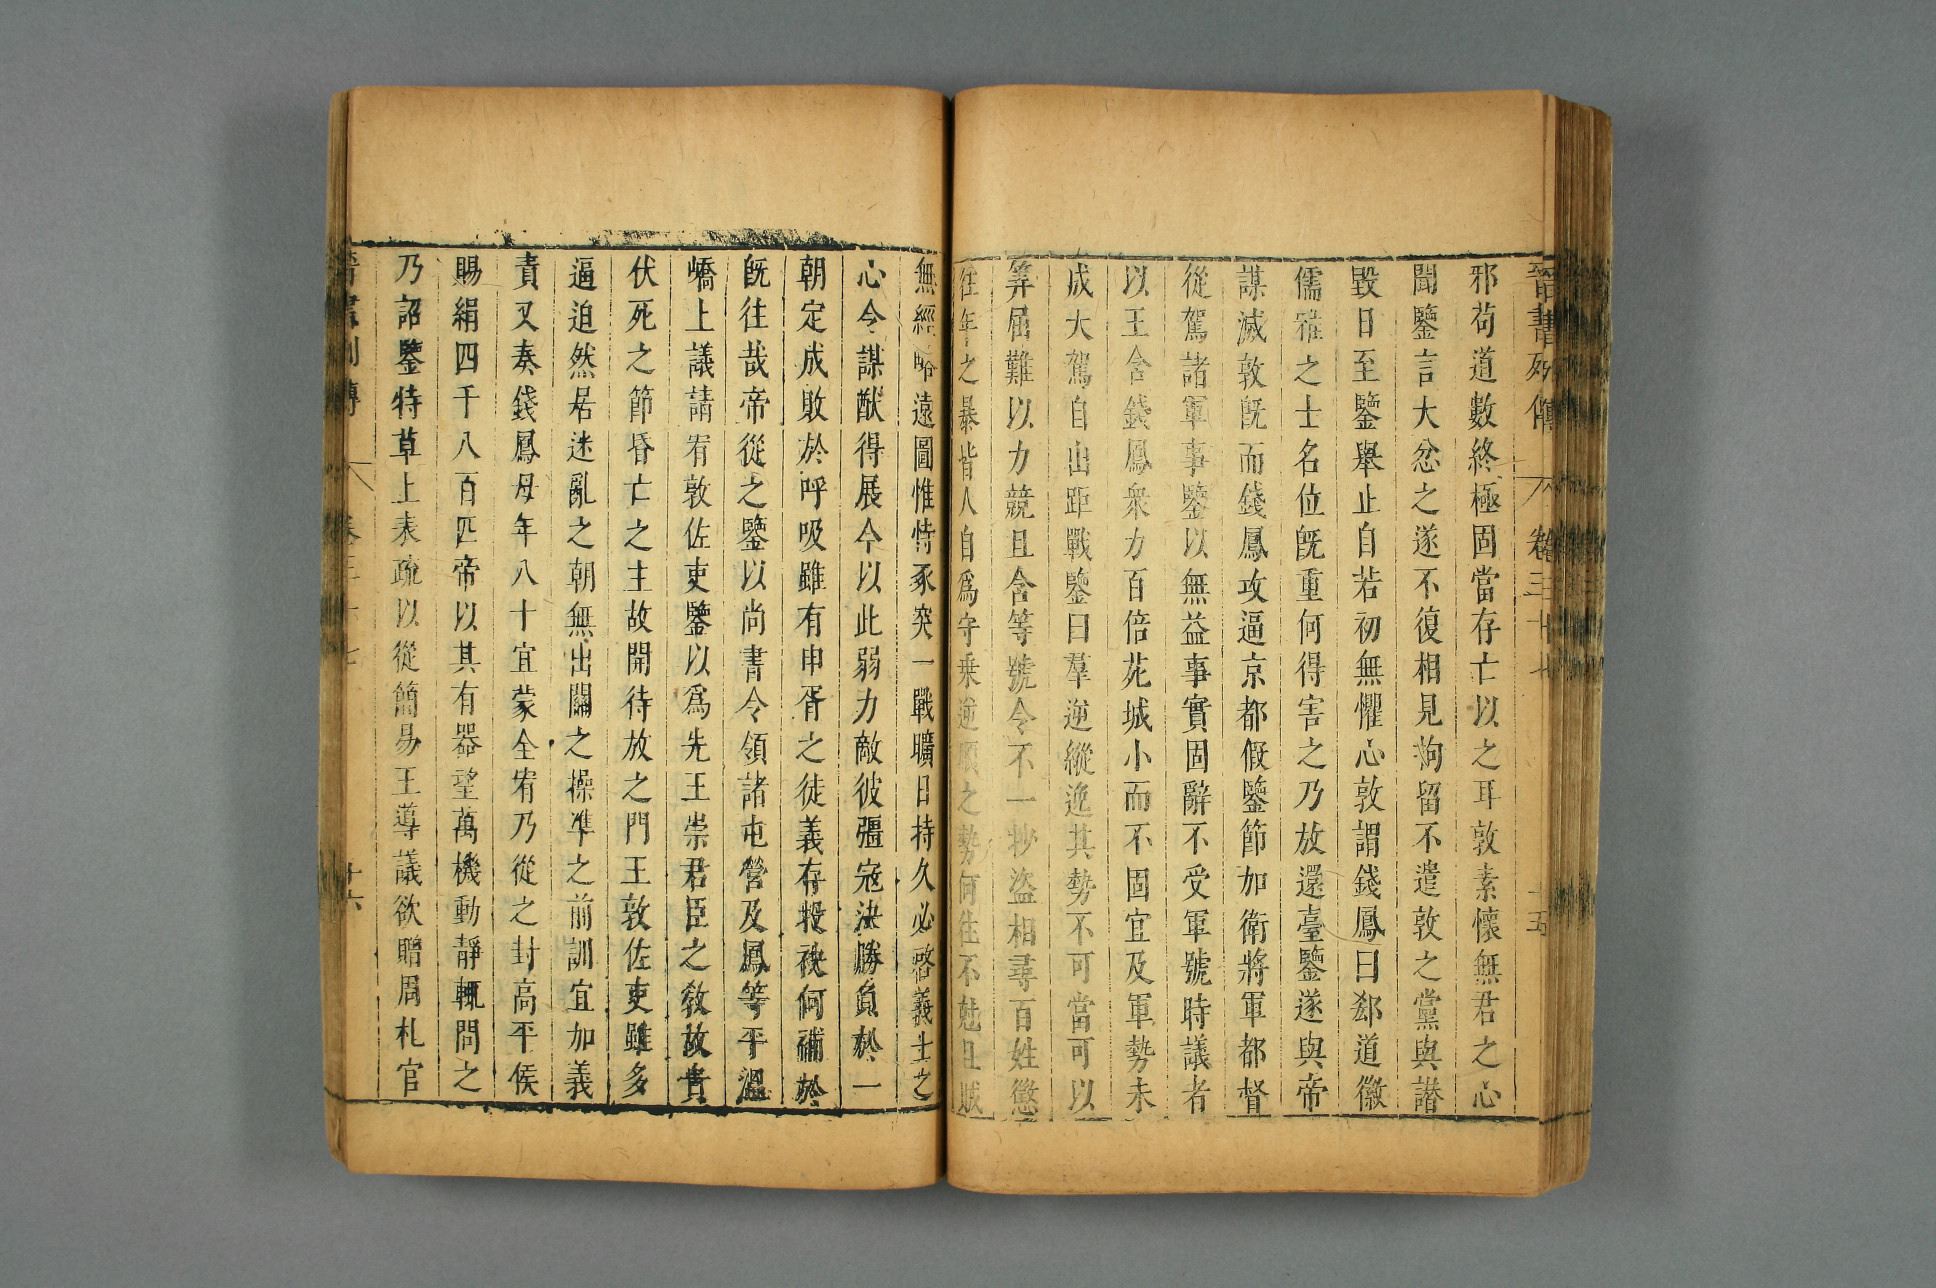 晉書列傳 卷三十七 十五
邪苟道數終極固當存亡以之耳敦素懷無君之心
聞鑒言大忿之遂不復相見拘留不遣敦之黨與譖
毀日至鑒舉止自若初無懼心敦謂錢鳳曰郄道徽
儒雅之士名位旣重何得害之乃放還臺鑒遂與帝
謀滅敦旣而錢鳳攻逼京都假鑒節加衛將軍都督
從駕諸軍事鑒以無益事實固辭不受軍號時議者
以王含錢鳳衆力百倍苑城小而不固宜及軍勢未
成大駕自出距戰鑒曰羣逆縱逸其勢不可當可以
筭屈難以力競且含等號令不一抄盜相尋百姓懲
往年之暴皆人自爲守乘逆順之勢何往不尅且賊
無經略遠圖惟恃豕突一戰曠日持久必啓義士之
心令謀猷得展今以此弱力敵彼彊寇決勝負於一
朝定成敗於呼吸雖有申胥之徒義存投袂何補於
旣往哉帝從之鑒以尚書令領諸屯營及鳳等平溫
嶠上議請宥敦佐吏鑒以爲先王崇君臣之敎故貴
伏死之節昏亡之主故開待放之門王敦佐吏雖多
逼迫然居迷亂之朝無出關之操準之前訓宜加義
責又奏錢鳳母年八十宜蒙全宥乃從之封高平侯
賜絹四千八百匹帝以其有器望萬機動靜輒問之
乃詔鑒特草上表疏以從簡易王導議欲贈周札官
晉書列傳 卷三十七 十六